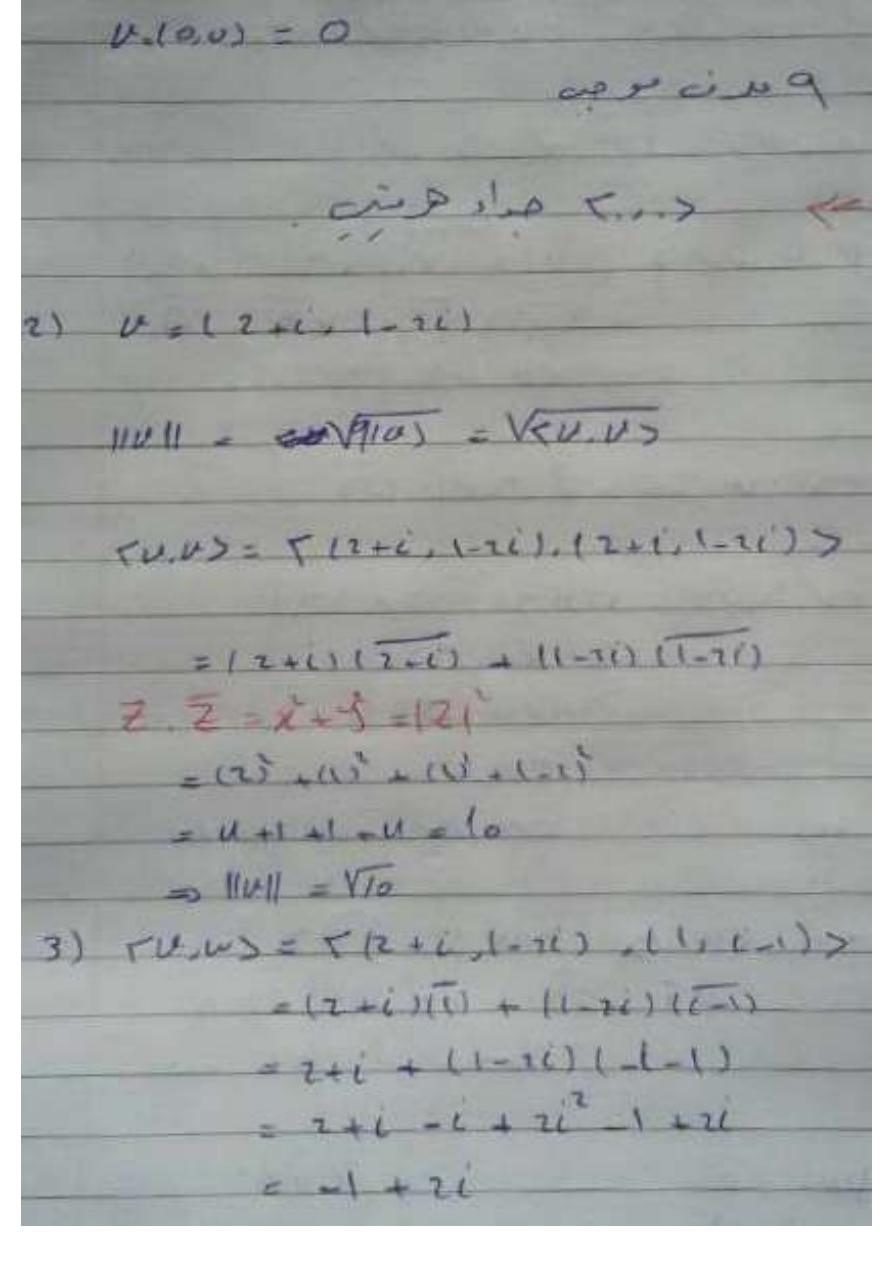 v = (0,0) = 0
q
<.,.> جداء هرميتي
2) v = (2+i, 1-2i)
||v|| = √q(v) = √<v,v>
<v,v> = <(2+i, 1-2i), (2+i, 1-2i)>
= (2+i)(\overline{2+i}) + (1-2i)(\overline{1-2i})
Z . \overline{Z} = x² + y² = |Z|²
= (2)² + (1)² + (1)² + (-2)²
= 4 + 1 + 1 + 4 = 10
⇒ ||v|| = √10
3) <v,w> = <(2+i, 1-2i), (1, i-1)>
= (2+i)(\overline{1}) + (1-2i)(\overline{i-1})
= 2+i + (1-2i)(-i-1)
= 2+i -i + 2i² -1 + 2i
= -1 + 2i